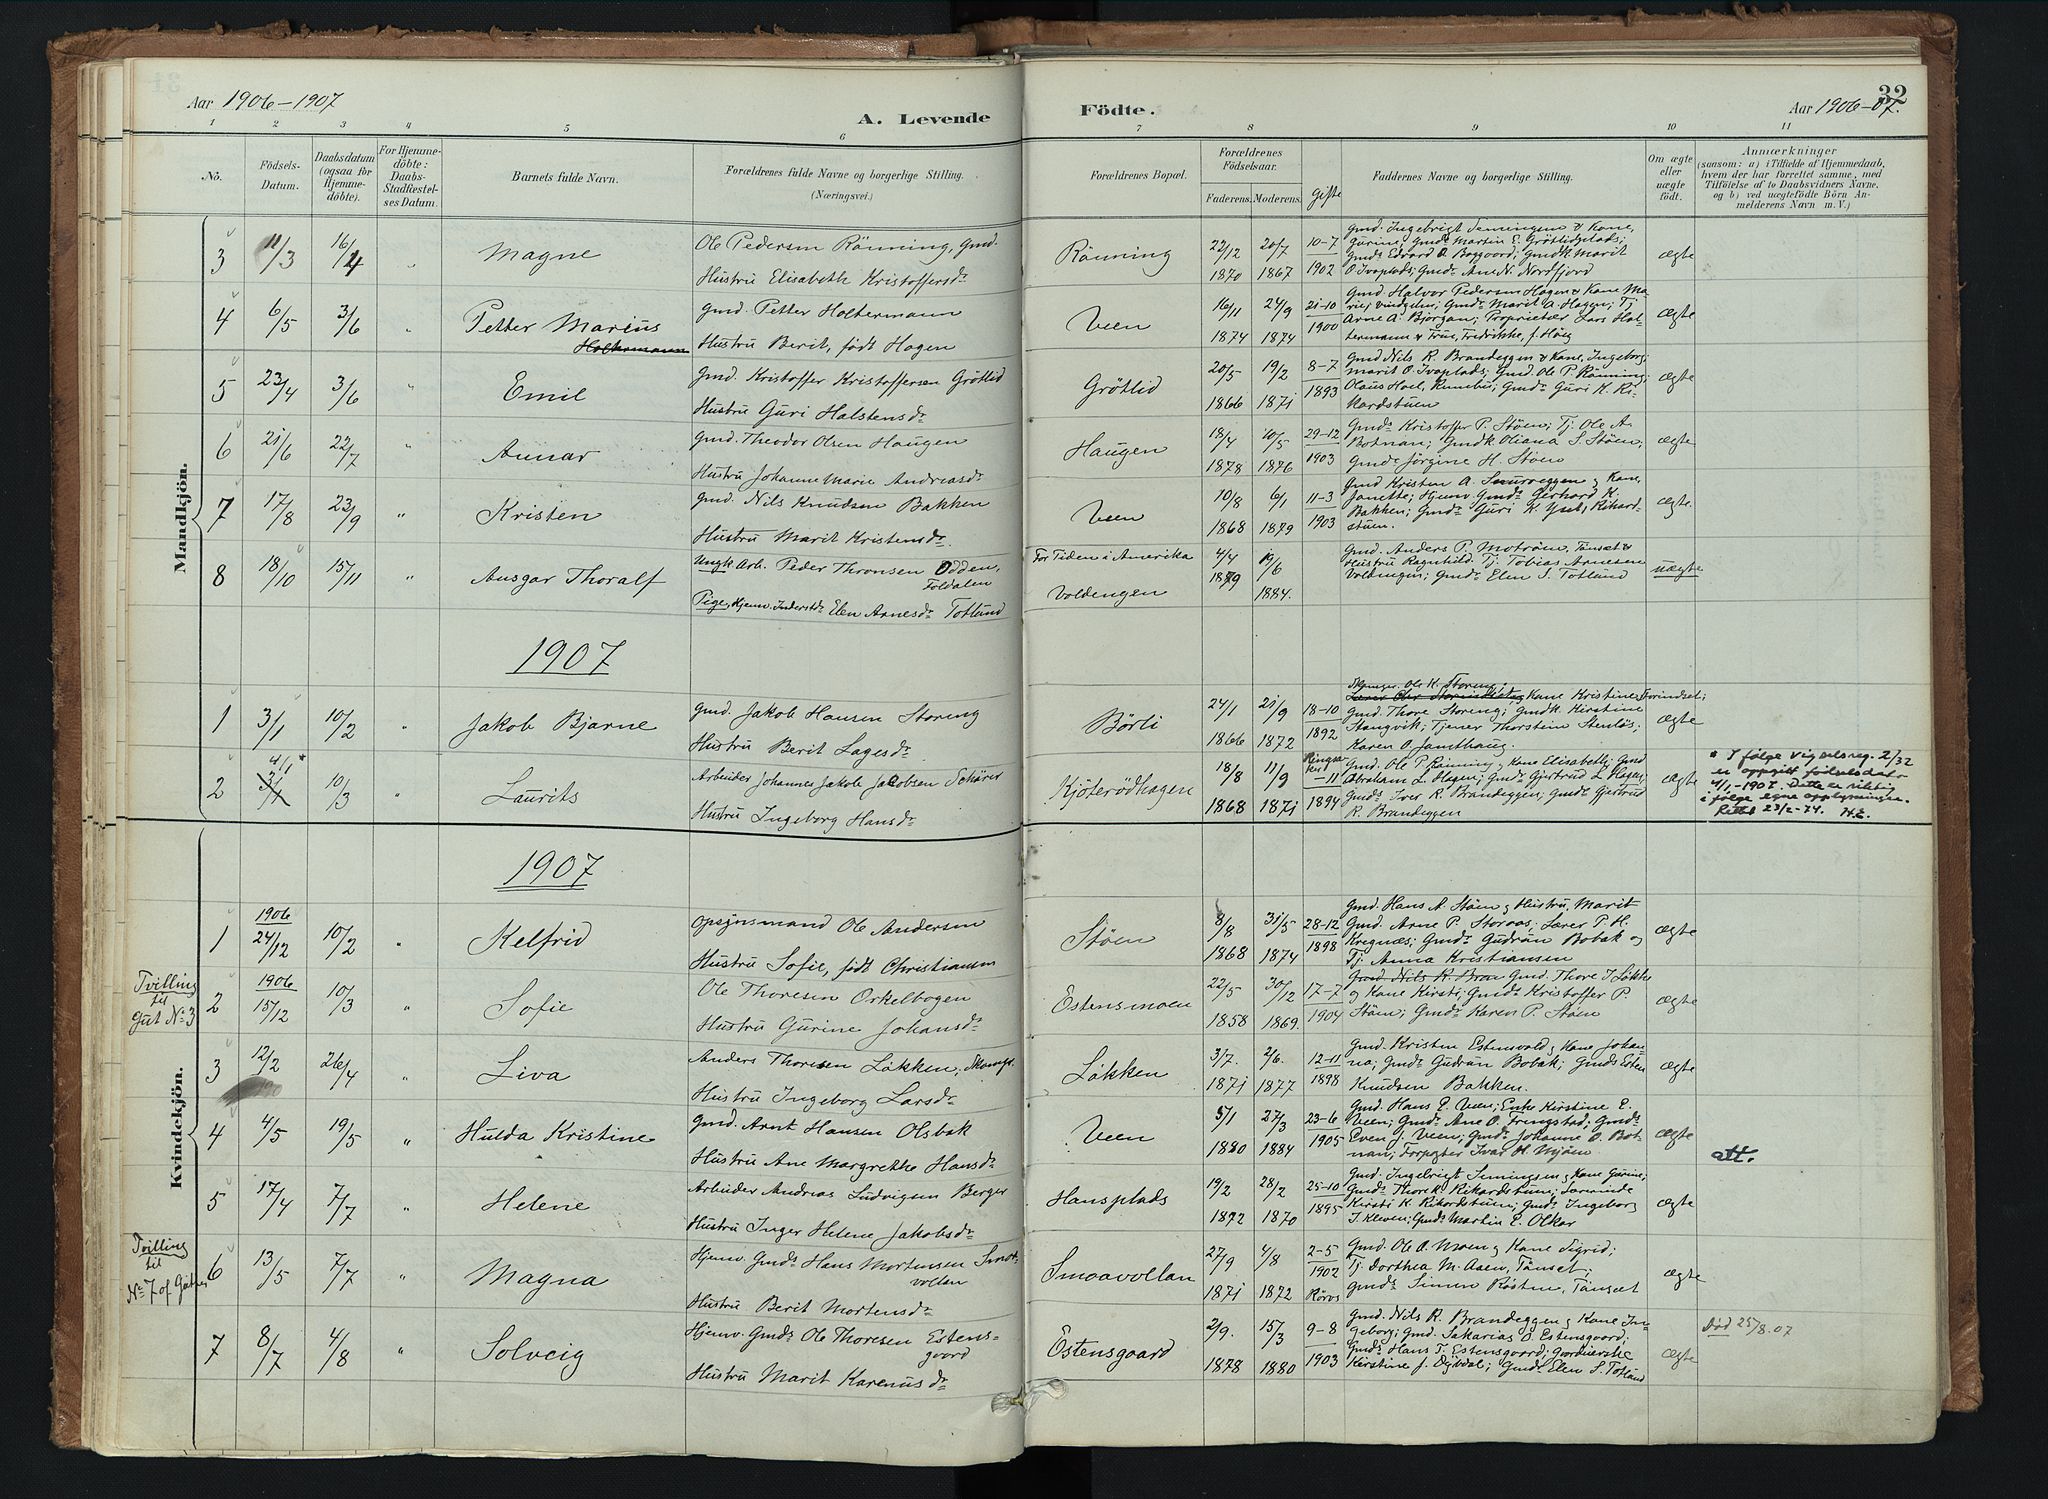 Aar 1906–1907
A. Levende
Födte.
32
Aar 1906–07.
1 2 3 4 5 6 7 8 9 10 11
Nö.
Födsels-
Datum.
Daabsdatum
(ogsaa for
Hjemme-
döbte).
For Hjemme-
döbte:
Daabs-
Stadfæstel-
ses Datum.
Barnets fulde Navn.
Forældrenes fulde Navne og borgerlige Stilling.
(Næringsvei.)
Forældrenes Bopæl.
Forældrenes
Födselsaar.
Faderens. Moderens.
Gifte
Faddernes Navne og borgerlige Stilling.
Om ægte
eller
uægte
født.
Anmærkninger
(saasom: a) i Tilfælde af Hjemmedaab,
hvem der har forrettet samme, med
Tilföielse af to Daabsvidners Navne,
og b) ved uægtefödte Börn An-
melderens Navn m. V.)
Mandkjön.
3 11/3 16/4 " Magne
Ole Pedersen Rönning, Gmd.
Hustru Elisabeth Kristoffersdr
Rönning
22/12 1870
20/7 1867
10-7 1902
Gmd. Ingebrigt Semingsen & Kone,
Gurine; Gmds Martin E. Grötlidplads;
Gmds Edvard O. Borggaard; Gmdk. Marit
O. Ivaplads; Gmdr Ane N. Nordfjord
ægte
4 6/5 3/6 " Petter Marius
Holtermann
Gmd. Petter Holtermann
Hustru Berit, født Hagen
Veen
16/11 1874
24/9 1874
21-10 1900
Gmd. Halvor Pedersen Hagen & Kone Ma-
rie, Vindgeln; Gmdr Marit A. Hagen; Tj.
Arne A. Bjørgan; Proprietær Lars Hol-
termann & Frue, Fredrikke, f. Høeg
ægte
5 23/4 3/6 " Emil
Gmd. Kristoffer Kristoffersen Grötlid
Hustru Guri Halstensdr
Grötlid
20/5 1866
19/2 1871
8-7 1893
Gmd Nils R. Brandeggen & Kone, Ingeborg;
Marit O. Ivaplads; Gmd. Ole P. Rönning;
Olaus Hoel, Rennebu; Gmdr Guri K. Ri-
kardstuen
ægte
6 21/6 22/7 " Annar
Gmd. Theodor Olsen Haugen
Hustru Johanne Marie Andreasdr
Haugen
18/4 1878
10/5 1876
29-12 1903
Gmds Kristoffer P. Stöen; Tj. Ole A.
Botnan; Gmdk. Oliana S. Stöen;
Gmdr Jörgine H. Stöen
ægte
7 17/8 23/9 " Kristen
Gmd. Nils Knudsen Bakken
Hustru Marit Kristensdr
Veen
10/8 1868
6/1 1879
11-3 1903
Gmd Kristen A. Snurroeggen & Kone,
Janette; Hjemv. Gmds Gerhard K.
Bakken; Gmdr Guri K. Yset, Rikard-
stuen.
ægte
8 18/10 15/11 " Ansgar Thoralf
Ungk. Arb. Peder Thronsen Odden,
Foldalen
Pige, Hjemv. Inderstdr Elen Arnesdr Totlund
For Tiden i Amerika
Voldengen
4/4 1879
19/6 1884.
Gmd. Anders P. Motröen, Tønset &
Hustru Ragnhild. Tj. Tobias Arnesen
Voldengen; Gmdr Elen S. Totlund
uægte
1907
1 3/1 10/2 " Jakob Bjarne
Gmd. Jakob Hansen Storeng
Hustru Berit Lagesdr
Börli
24/1 1866
21/9 1872
18-10 1892
Ole K. Storeng;
Kone Kristine
Gmd. Thore Storeng; Gmdk. Kirstine
Stangvik; Tjener Thorstein Stenløs;
Karen O. Jamthaug.
ægte
2 4/1 * 10/3 " Laurits
Arbeider Johannes Jakob Jakobsen Schärer
Hustru Ingeborg Hansdr
Kjöterödhagen
18/8 1868
11/9 1871
Ringsaker -11 1894
Gmd. Ole P. Rönning & Kone Elisabeth; Gmd
Abraham L. Hagen; Gmdr Gjertrud L. Hagen;
Gmds Iver R. Brandeggen; Gmdr Gjertrud
R. Brandeggen
ægte
* I følge vigselsreg. 2/32
er oppgitt fødselsdato
4/1-1907. Dette er riktig
i følge egne opplysninger.
Rettet 23/2-74. H.E.
Kvindekjön.
1907
1 1906 24/12 10/2 " Kelfrid
Opsynsmand Ole Andersen
Hustru Sofie, født Christiansen
Stöen
8/8 1868
31/5 1874
28-12 1898
Gmd. Hans A. Stöen & Hustru, Marit
Gmd. Arne P. Storaas; Lærer P. H.
Kregnæs; Gmdr Gudrun Bobak og
Tj. Anna Kristiansen
ægte
Tvilling
til
Gut No 3
2 1906 15/12 10/3 " Sofie
Ole Thoresen Orkelbogen
Hustru Gurine Johansdr
Estensmoen
22/5 1858
30/12 1869.
17-7 1904
Gmd Nils R. Bran Gmd. Thore J. Løkke
& Kone Kirsti; Gmds Kristoffer P.
Stöen; Gmdr Karen P. Stöen
ægte
3 12/2 26/4 " Liva
Anders Thoresen Lökken, Skomgr.
Hustru Ingeborg Larsdr
Lökken
3/7. 1871
2/6. 1877
12-11 1898
Gmd. Kristen Estensvold & Kone Johan-
na; Gmdr Gudrun Bobak; Gmds Esten
Knudsen Bakken.
ægte
4 4/5 19/5 " Hulda Kristine
Gmd. Arnt Hansen Olsbak
Hustru Ane Margrethe Hansdr
Veen
5/1 1880
27/3 1884
23-6 1905
Gmd. Hans E. Veen; Enke Kirstine E.
Veen; Gmdr Ane O. Fringstad; Gmds
Even J. Veen; Gmdr Johanne O. Bot-
nan; Forpagter Ivar H. Mjøen
ægte
att.
5 17/4 7/7 " Helene
Arbeider Andreas Ludvigsen Berger
Hustru Inger Helene Jakobsdr
Hansplads
19/2 1872
28/2 1870
25-10 1895
Gmd. Ingebrigt Semingsen & Kone Gurine;
Gmds Thore K. Rikardstuen; Lærerinde
Kirsti K. Rikardstuen; Gmdr Ingeborg
J. Kleven; Gmds Martin E. Olkar
ægte
Tvilling
til
No 7 af Gutter
6 13/5 7/7 " Magna
Hjemv. Gmds Hans Mortensen Smoa-
vollan
Hustru Berit Mortensdr
Smoavollan
27/9 1871
4/8 1872
2-5 1902 Röros
Gmd. Ole A. Moen & Kone Sigrid;
Tj. Dorthea M. Aaen, Tönset;
Gmds Simen Røsten, Tönset
ægte
7 8/7 4/8 " Solveig
Hjemv. Gmds Ole Thoresen Estens-
gaard
Hustru Marit Karenusdr
Estensgaard
2/9. 1878
15/3 1880
9-8 1903
Gmd. Nils R. Brandeggen & Kone In-
geborg; Gmd. Sakarias O. Estensgaard;
Gmds Hans T. Estensgaard; Gaardeierske
Kirstine J. Dybdal; Gmdr Elen S. Totlund
ægte
Död 25/8.07